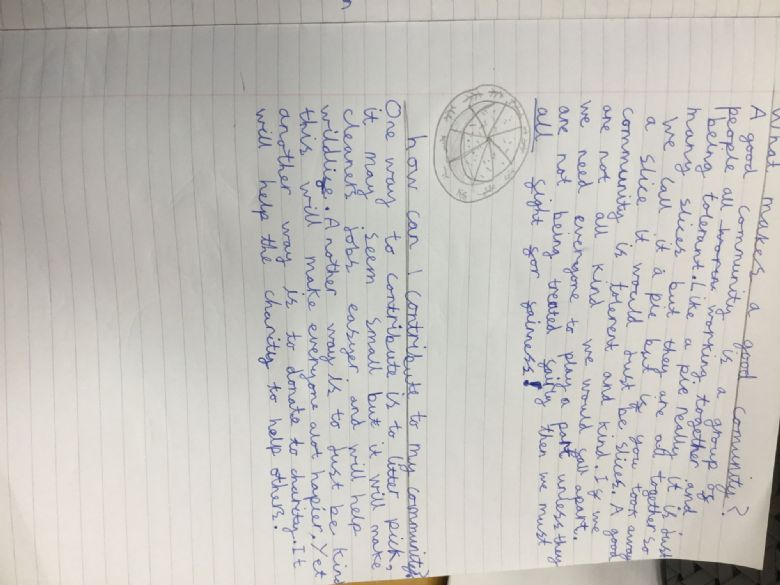 What makes a good comunity?
A good community is a group of
people all working together and
being tolerant. Like a pie really it is just
many slices but they are all together so
we call it a pie but if you took away
a slice it would just be slices. A good
community is tolerent and kind. If we
are not all kind we would fall apart.
we need everyone to play a part unless they
are not being treated fairly then we must
all fight for fairness!
how can I contribute to my community?
One way to contribute is to litter pick,
it may seem small but it will make
cleaners jobs easyer and will help
wildlife. Another way is to just be kind
this will make everyone alot hapier. Yet
another way is to donate to charity. It
will help the charity to help others.